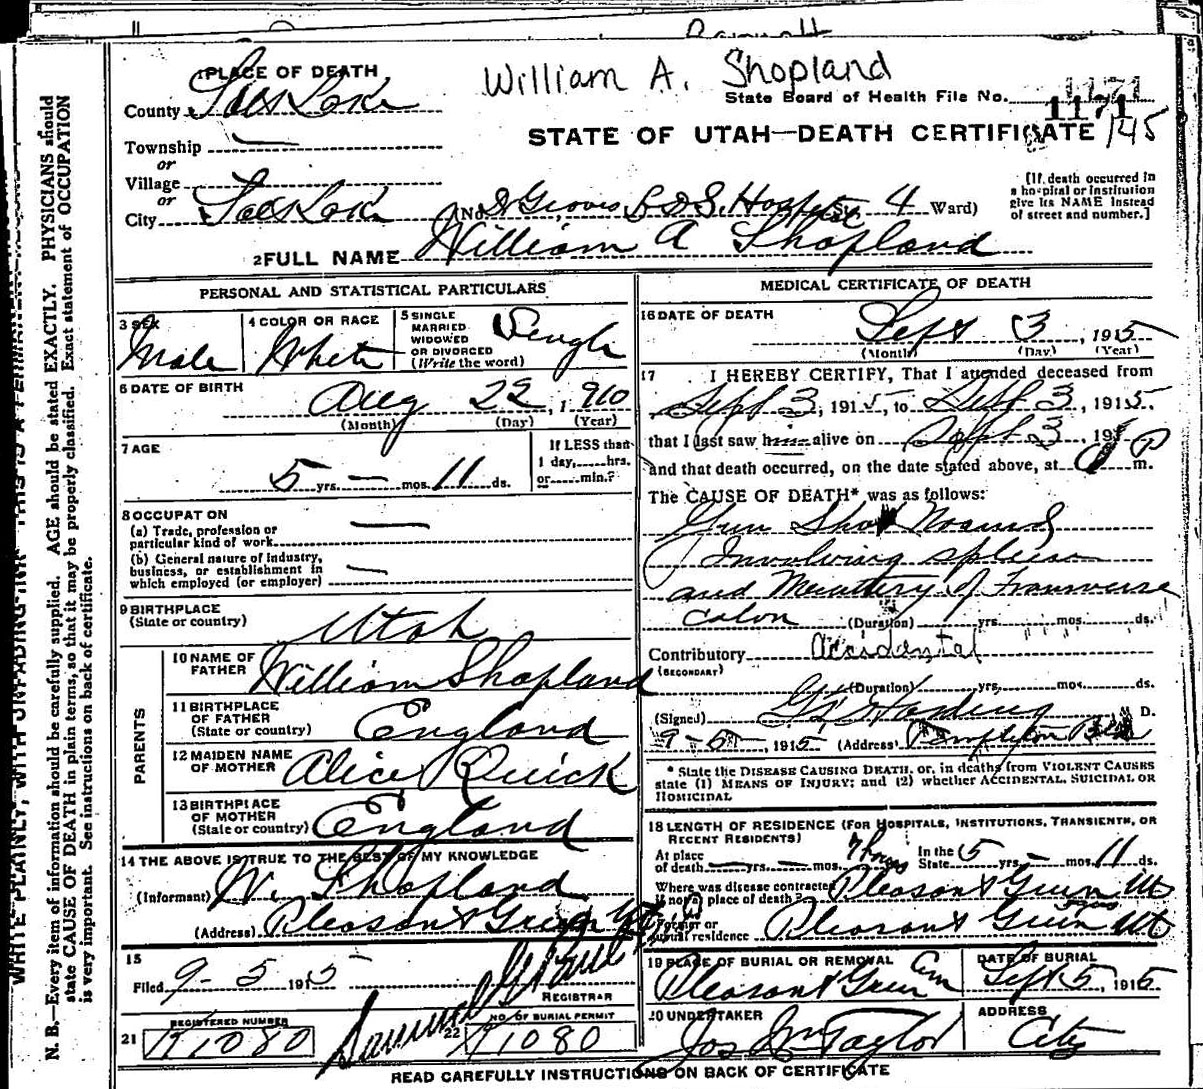 William A. Shopland
1 PLACE OF DEATH
County Salt Lake
State Board of Health File No. 1171
STATE OF UTAH—DEATH CERTIFICATE 145
Township —
or
Village
or
City Salt Lake (No. Groves L.D.S. Hospital St. 4 Ward)
[If death occurred in
a hospital or institution
give its NAME instead
of street and number.]
2 FULL NAME William A Shopland
PERSONAL AND STATISTICAL PARTICULARS
3 SEX Male
4 COLOR OR RACE White
5 SINGLE
MARRIED
WIDOWED
OR DIVORCED
(Write the word) Single
6 DATE OF BIRTH
Aug 22, 1910
(Month) (Day) (Year)
7 AGE
5 yrs. — mos. 11 ds.
If LESS than
1 day,......hrs.
or......min.?
8 OCCUPATION
(a) Trade, profession or
particular kind of work —
(b) General nature of industry,
business, or establishment in
which employed (or employer) —
9 BIRTHPLACE
(State or country) Utah
PARENTS
10 NAME OF
FATHER William Shopland
11 BIRTHPLACE
OF FATHER
(State or country) England
12 MAIDEN NAME
OF MOTHER Alice Quick
13 BIRTHPLACE
OF MOTHER
(State or country) England
14 THE ABOVE IS TRUE TO THE BEST OF MY KNOWLEDGE
(Informant) W. Shopland
(Address) Pleasant Green Ut
15
Filed 9-5 1915
REGISTRAR
21 REGISTERED NUMBER
K1080
22 NO. OF BURIAL PERMIT
K1080
MEDICAL CERTIFICATE OF DEATH
16 DATE OF DEATH
Sept 3, 1915
(Month) (Day) (Year)
17 I HEREBY CERTIFY, That I attended deceased from
Sept 3, 1915, to Sept 3, 1915,
that I last saw him alive on Sept 3, 191
and that death occurred, on the date stated above, at m.
The CAUSE OF DEATH* was as follows:
Gun Shot Wound
Involving spleen
and Mesentery of Transverse
colon (Duration) yrs. mos. ds.
Contributory Accidental
(SECONDARY)
(Duration) yrs. mos. ds.
(Signed) Harding D.
9-5, 1915 (Address) Templeton Bld
* State the DISEASE CAUSING DEATH, or, in deaths from VIOLENT CAUSES
state (1) MEANS OF INJURY; and (2) whether ACCIDENTAL, SUICIDAL OR
HOMICIDAL
18 LENGTH OF RESIDENCE (FOR HOSPITALS, INSTITUTIONS, TRANSIENTS, OR
RECENT RESIDENTS)
At place
of death — yrs. — mos. 7 hours In the
State 5 yrs. — mos. 11 ds.
Where was disease contracted
If not at place of death? Pleasant Green Ut
Former or
usual residence Pleasant Green Ut
19 PLACE OF BURIAL OR REMOVAL
Pleasant Green Cem
DATE OF BURIAL
Sept 5, 1915
20 UNDERTAKER
Jos Wm Taylor
ADDRESS
City
READ CAREFULLY INSTRUCTIONS ON BACK OF CERTIFICATE
N. B.—Every item of information should be carefully supplied. AGE should be stated EXACTLY. PHYSICIANS should
state CAUSE OF DEATH in plain terms, so that it may be properly classified. Exact statement of OCCUPATION
is very important. See instructions on back of certificate.
WRITE PLAINLY, WITH UNFADING INK—THIS IS A PERMANENT RECORD